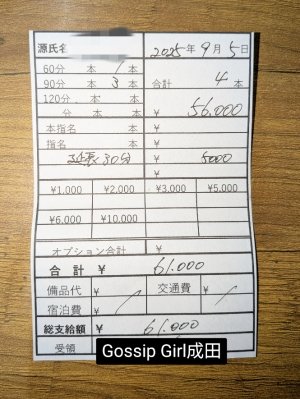 源氏名 2025年9月5日
60分 本 1本
90分 本 3本 合計 4本
120分 本 ¥ 56,000
分 本 ¥
本指名 本 ¥
指名 本 ¥
延長30分 ¥ 5000
¥1,000 ¥2,000 ¥3,000 ¥5,000
¥6,000 ¥10,000
オプション合計 ¥
合計 ¥ 61,000
備品代 ¥ 交通費 ¥
宿泊費 ¥
総支給額 ¥ 61,000
受領
Gossip Girl成田